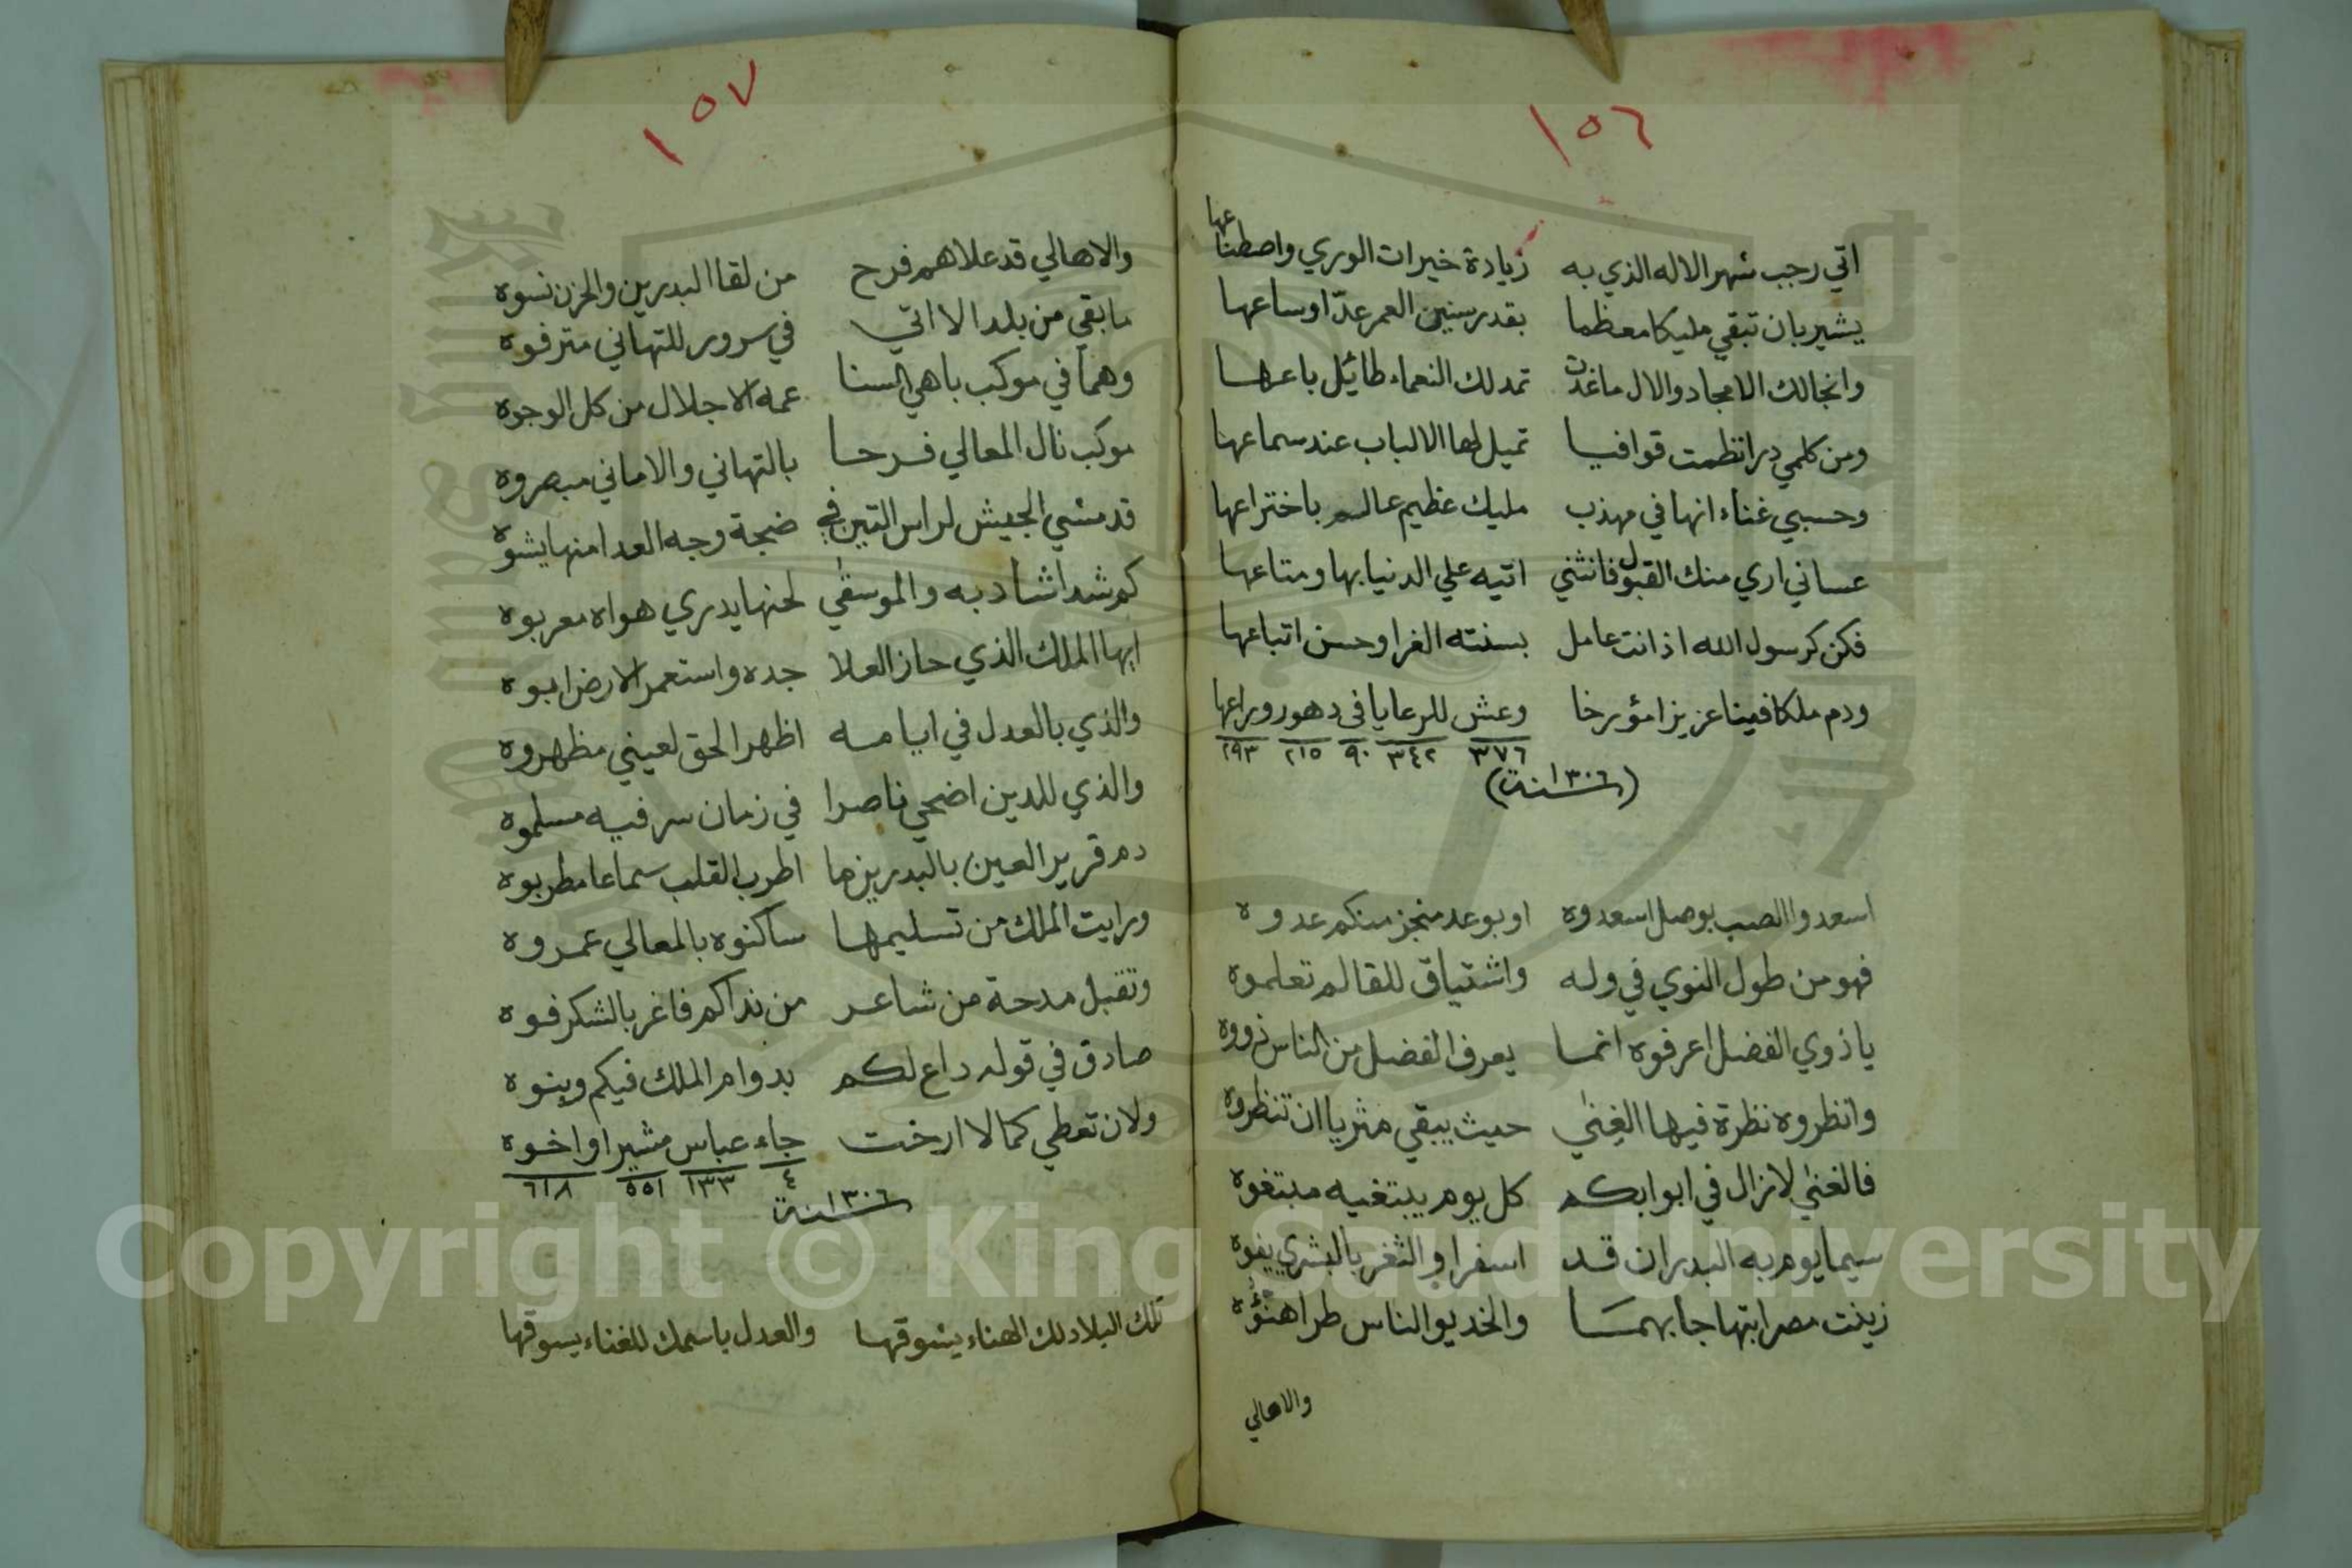 ١٥٦
اتي رجب شهر الاله الذي به زيادة خيرات الوري واصطناعها
يشير بان تبقي مليكا معظما بقدر سنين العمر عدّا وساعها
وانجالك الامجاد والال ما غدت تمد لك النعماء طائيل باعها
ومن كلمي درا نظمت قوافيا تميل لها الالباب عند سماعها
وحسبي غناء انها في مهذب مليك عظيم عالم باختراعها
عساني اري منك القبول فانثني اتيه علي الدنيا بها ومتاعها
فكن كرسول الله اذ انت عامل بسنته الغرا وحسن اتباعها
ودم ملكا فينا عزيزا مؤرخا وعش للرعايا في دهور وراعها
٣٧٦ ٣٤٢ ٩٠ ٢١٥ ٢٩٣
(سنة ١٣٠٦)
اسعدوا الصب بوصل اسعدوه او بوعد منجز منكم عدوه
فهو من طول النوي في وله واشتياق للقا لم تعلموه
يا ذوي الفضل اعرفوه انما يعرف الفضل من الناس ذووه
وانظروه نظرة فيها الغنى حيث يبقي مثريا ان تنظروه
فالغني لا زال في ابوابكم كل يوم يبتغيه مبتغوه
سيما يوم به البدران قد اسفرا والثغر بالبشري يفوه
زينت مصر ابتهاجا بهما والخديو الناس طرا هنؤه
والاهالي
١٥٧
والاهالي قد علاهم فرح من لقا البدرين والحزن نسوه
ما بقي من بلد الا اتي في سرور للتهاني مترفوه
وهما في موكب باهي السنا عمه الاجلال من كل الوجوه
موكب نال المعالي فرحا بالتهاني والاماني مبصروه
قد مشي الجيش لراس التين في ضجة وجه العدا منها يشوه
كم شدا شاد به والموسقي لحنها يدري هواه معربوه
ايها الملك الذي حاز العلا جده واستعمر الارض ابوه
والذي بالعدل في ايامه اظهر الحق لعيني مظهروه
والذي للدين اضحي ناصرا في زمان سر فيه مسلموه
دم قرير العين بالبدرين ما اطرب القلب سماعا مطربوه
ورايت الملك من تسليمها ساكنوه بالمعالي عمروه
وتقبل مدحة من شاعر من نداكم فاغر بالشكر فوه
صادق في قوله داع لكم بدوام الملك فيكم وبنوه
ولان تعطي كمالا ارخت جاء عباس مشيرا واخوه
٤ ١٣٣ ٥٥١ ٦١٨
سنة ١٣٠٦
تلك البلاد لك الهناء يشوقها والعدل باسمك للغناء يسوقها
Copyright © King Saud University